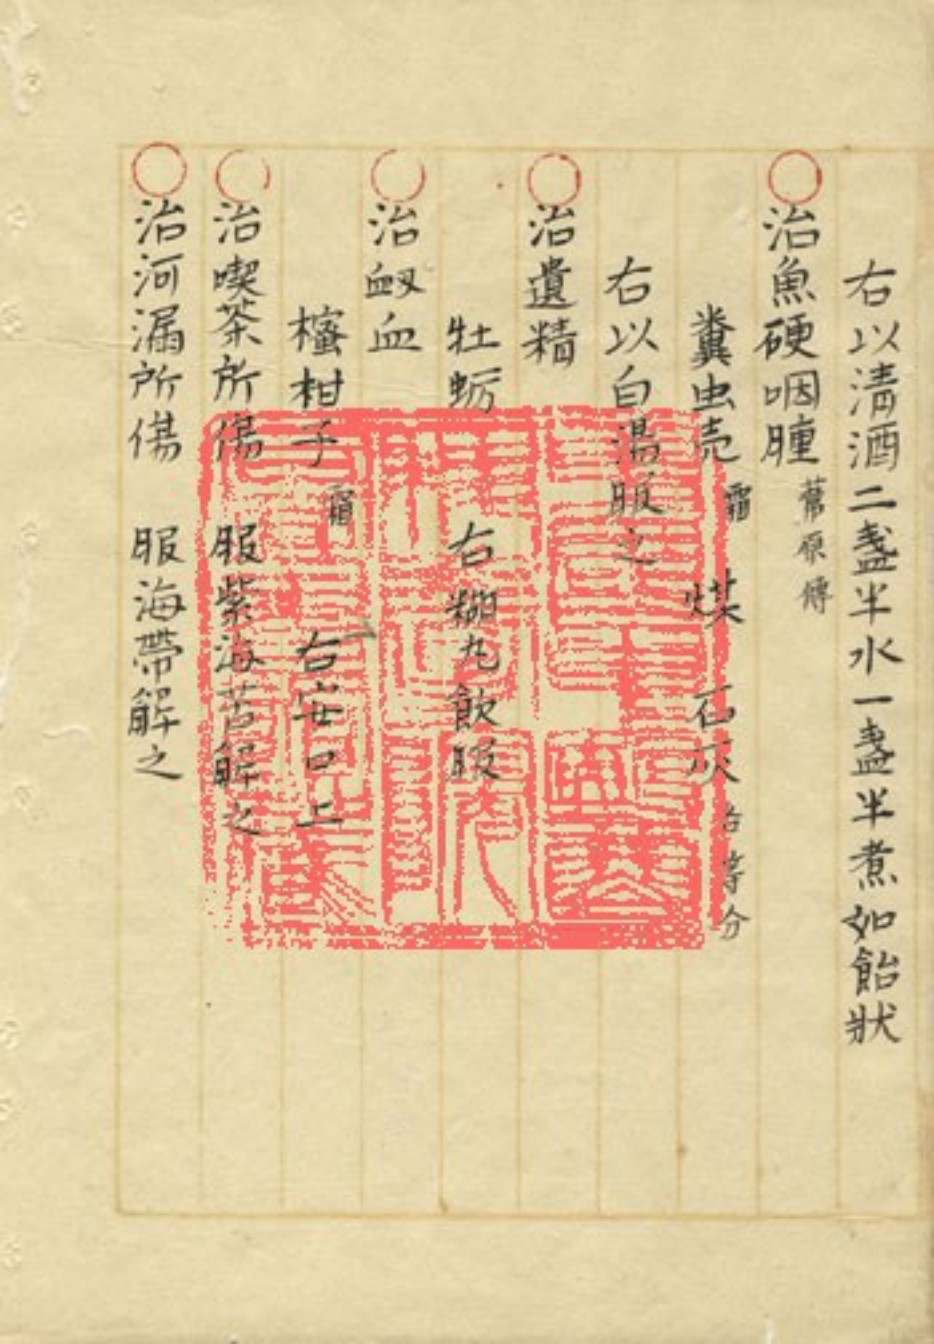 右以清酒二盞半水一盞半煮如飴狀
○治魚硬咽腫 菅原傳
糞虫壳霜 煤 石灰各等分
右以白湯服之
○治遺精
牡蛎 右糊丸飲服
○治衂血
櫁柑子霜 右安口上
○治喫茶所傷 服紫海苔解之
○治河漏所傷 服海帶解之